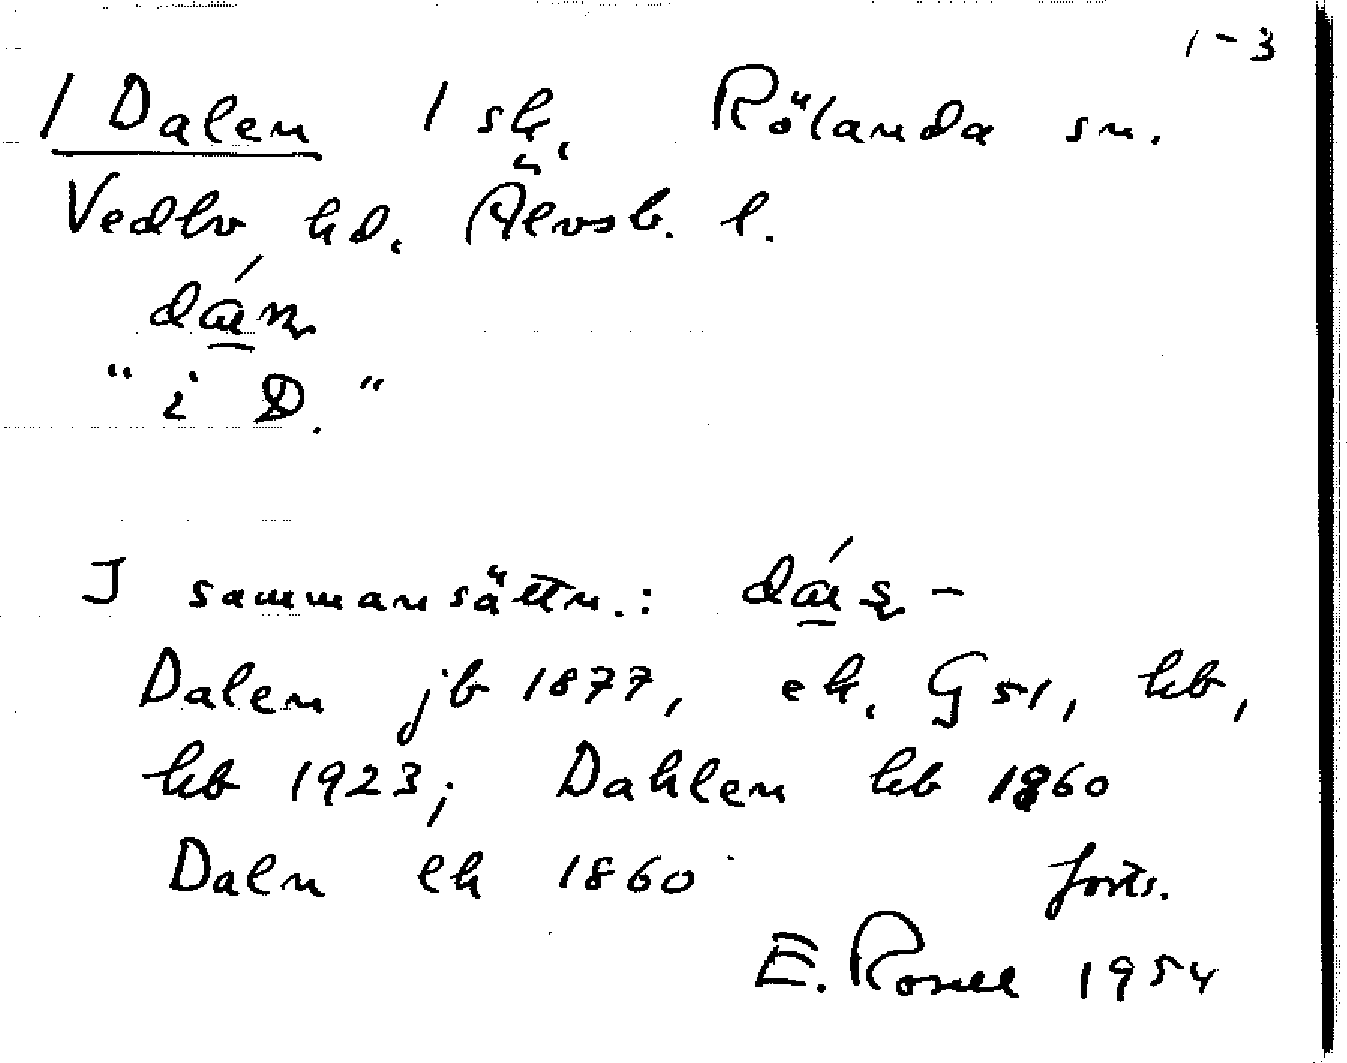 1-3
1 Dalen 1 sk. Rölanda sn.
Vedbo hd. Älvsb. l.
"i D."
I sammansättn.:
Dalen jb 1877, ek. G 51, kb,
hb 1923; Dahlen kb 1860
Daln ek 1860 forts.
E. Rosell 1954